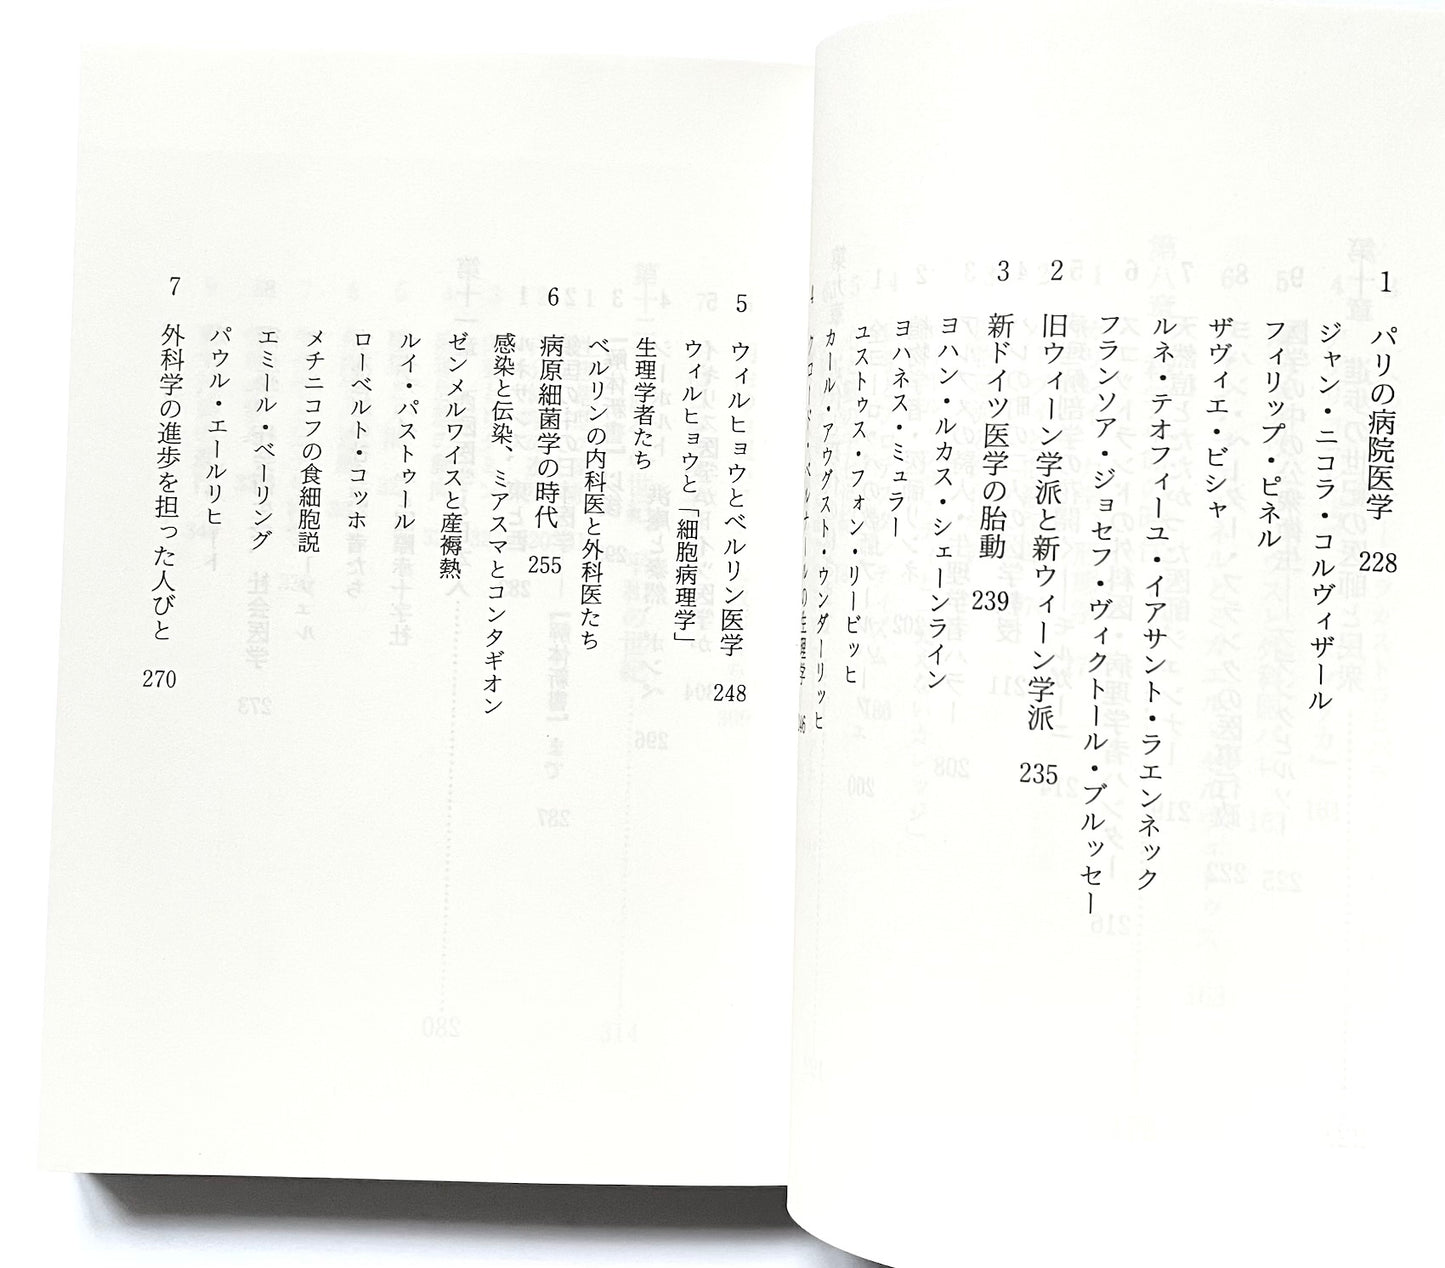 1 パリの病院医学 228
ジャン・ニコラ・コルヴィザール
フィリップ・ピネル
ザヴィエ・ビシャ
ルネ・テオフィーユ・イアサント・ラエンネック
フランソア・ジョセフ・ヴィクトール・ブルッセー
2 旧ウィーン学派と新ウィーン学派 235
3 新ドイツ医学の胎動 239
ヨハン・ルカス・シェーンライン
ヨハネス・ミュラー
ユストゥス・フォン・リービッヒ
カール・アウグスト・ウンダーリッヒ
4 クロード・ベルナールの生理学 246
5 ウィルヒョウとベルリン医学 248
ウィルヒョウと「細胞病理学」
生理学者たち
ベルリンの内科医と外科医たち
6 病原細菌学の時代 255
感染と伝染、ミアスマとコンタギオン
ゼンメルワイスと産褥熱
ルイ・パストゥール
ローベルト・コッホ
メチニコフの食細胞説
エミール・ベーリング
パウル・エールリヒ
7 外科学の進歩を担った人びと 270